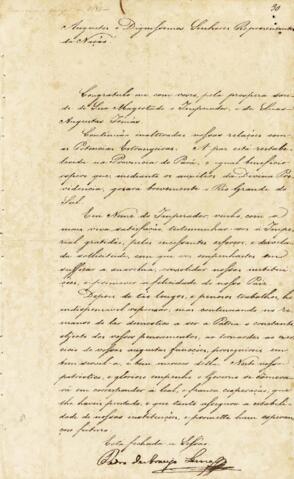 30
Augustos e Digníssimos Senhores Representantes
da Nação.
Congratulo-me com vosco, pela prospera sau-
de de Sua Magestade o Imperador, e de Suas
Augustas Irmãs.
Continuão inalteradas nossas relações com
as Potencias Estrangeiras. A paz está restabe-
lecida na Provincia do Pará, e igual beneficio
espero que, mediante os auxilios da Divina Pro-
videncia, gosará brevemente o Rio Grande do
Sul.
Em Nome do Imperador venho com a
mais viva satisfação testemunhar-vos a Impe-
rial gratidão, pelos incessantes esforços, e desvela-
da solicitude, com que vos empenhastes em
suffocar a anarchia, consolidar nossas institui-
ções, e promover a felicidade do nosso Paiz.
Depois de tão longos, e penosos trabalhos, he
indispensavel repousar, mas continuando no re-
manso da lar domestico a ser a Patria o constante
objecto dos vossos pensamentos, ao tornardes ao exer-
cicio de vossas augustas funcções, proseguireis em
bem della
patriotico, e glorioso empenho, e o Governo se esmera-
rá em corresponder á leal, e franca cooperação, que
lhe haveis prestado, e que tanto afiança a estabilida-
de de nossas instituições, e promette hum esperanço-
so futuro.
Está fechada a Sessão.
Pedro de Araujo Lima